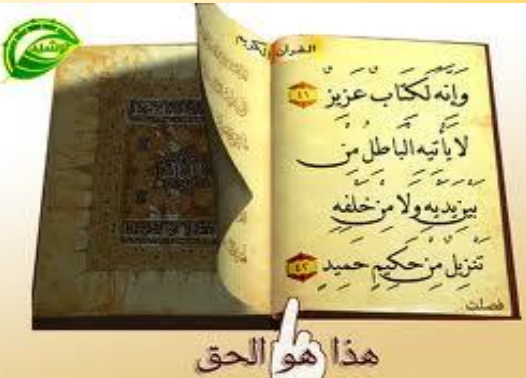 توشله
القرآن الكريم
وَإِنَّهُ لَكِتَابٌ عَزِيزٌ ٤١
لَا يَأْتِيهِ الْبَاطِلُ مِنْ
بَيْنِ يَدَيْهِ وَلَا مِنْ خَلْفِهِ
تَنْزِيلٌ مِنْ حَكِيمٍ حَمِيدٍ ٤٢
فصلت
هذا هو الحق